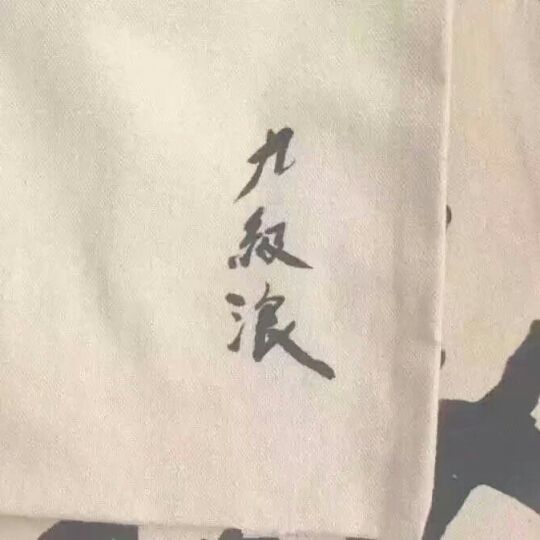 九級浪